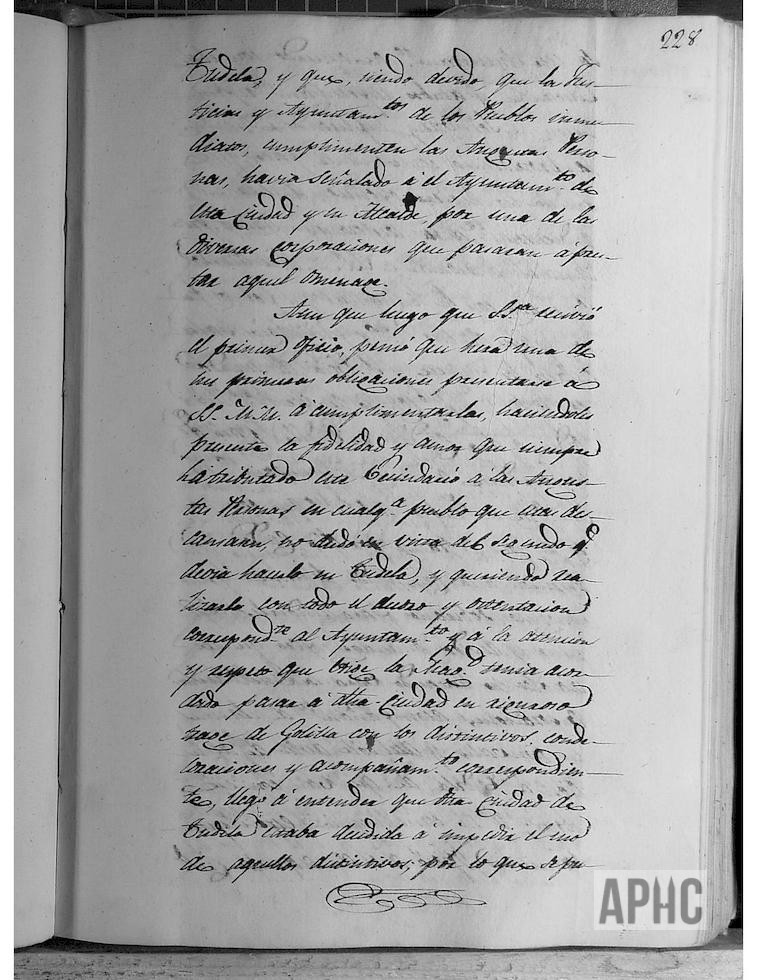 228
Tudela, y que, siendo devido, que las Jus-
ticias y Ayuntam.tos de los Pueblos inme-
diatos, cumplimenten las Augustas Perso-
nas, havia señalado á el Ayuntam.to de
esta Ciudad y su Alcalde, por una de las
diversas corporaciones que pasaran a pres-
tar aquel omenage.
Aun que luego que S.S.ª recivió
el primer oficio, pensó que hera una de
sus primeras obligaciones presentarse á
SS. M.M. á cumplimentarlas, haciendoles
presente la fidelidad y amor que siempre
ha tributado este Vecindario a las Augus-
tas Personas en cualq.ª pueblo que estas des-
cansaran, no dudó en vista del segundo q.e
devia hacerlo en Tudela, y queriendo rea-
lizarlo con todo el decoro y ostentacion
correspond.te al Ayuntam.to y á la atencion
y respeto que exige la Mag.d tenia acor-
dado pasar á dha Ciudad en riguroso
trage de Golilla con los distintivos, conde-
coraciones y acompañam.to correspondien-
te, llegó á entender que dha Ciudad de
Tudela estaba decidida á impedir el uso
de aquellos distintivos; por lo que se pu
APHC